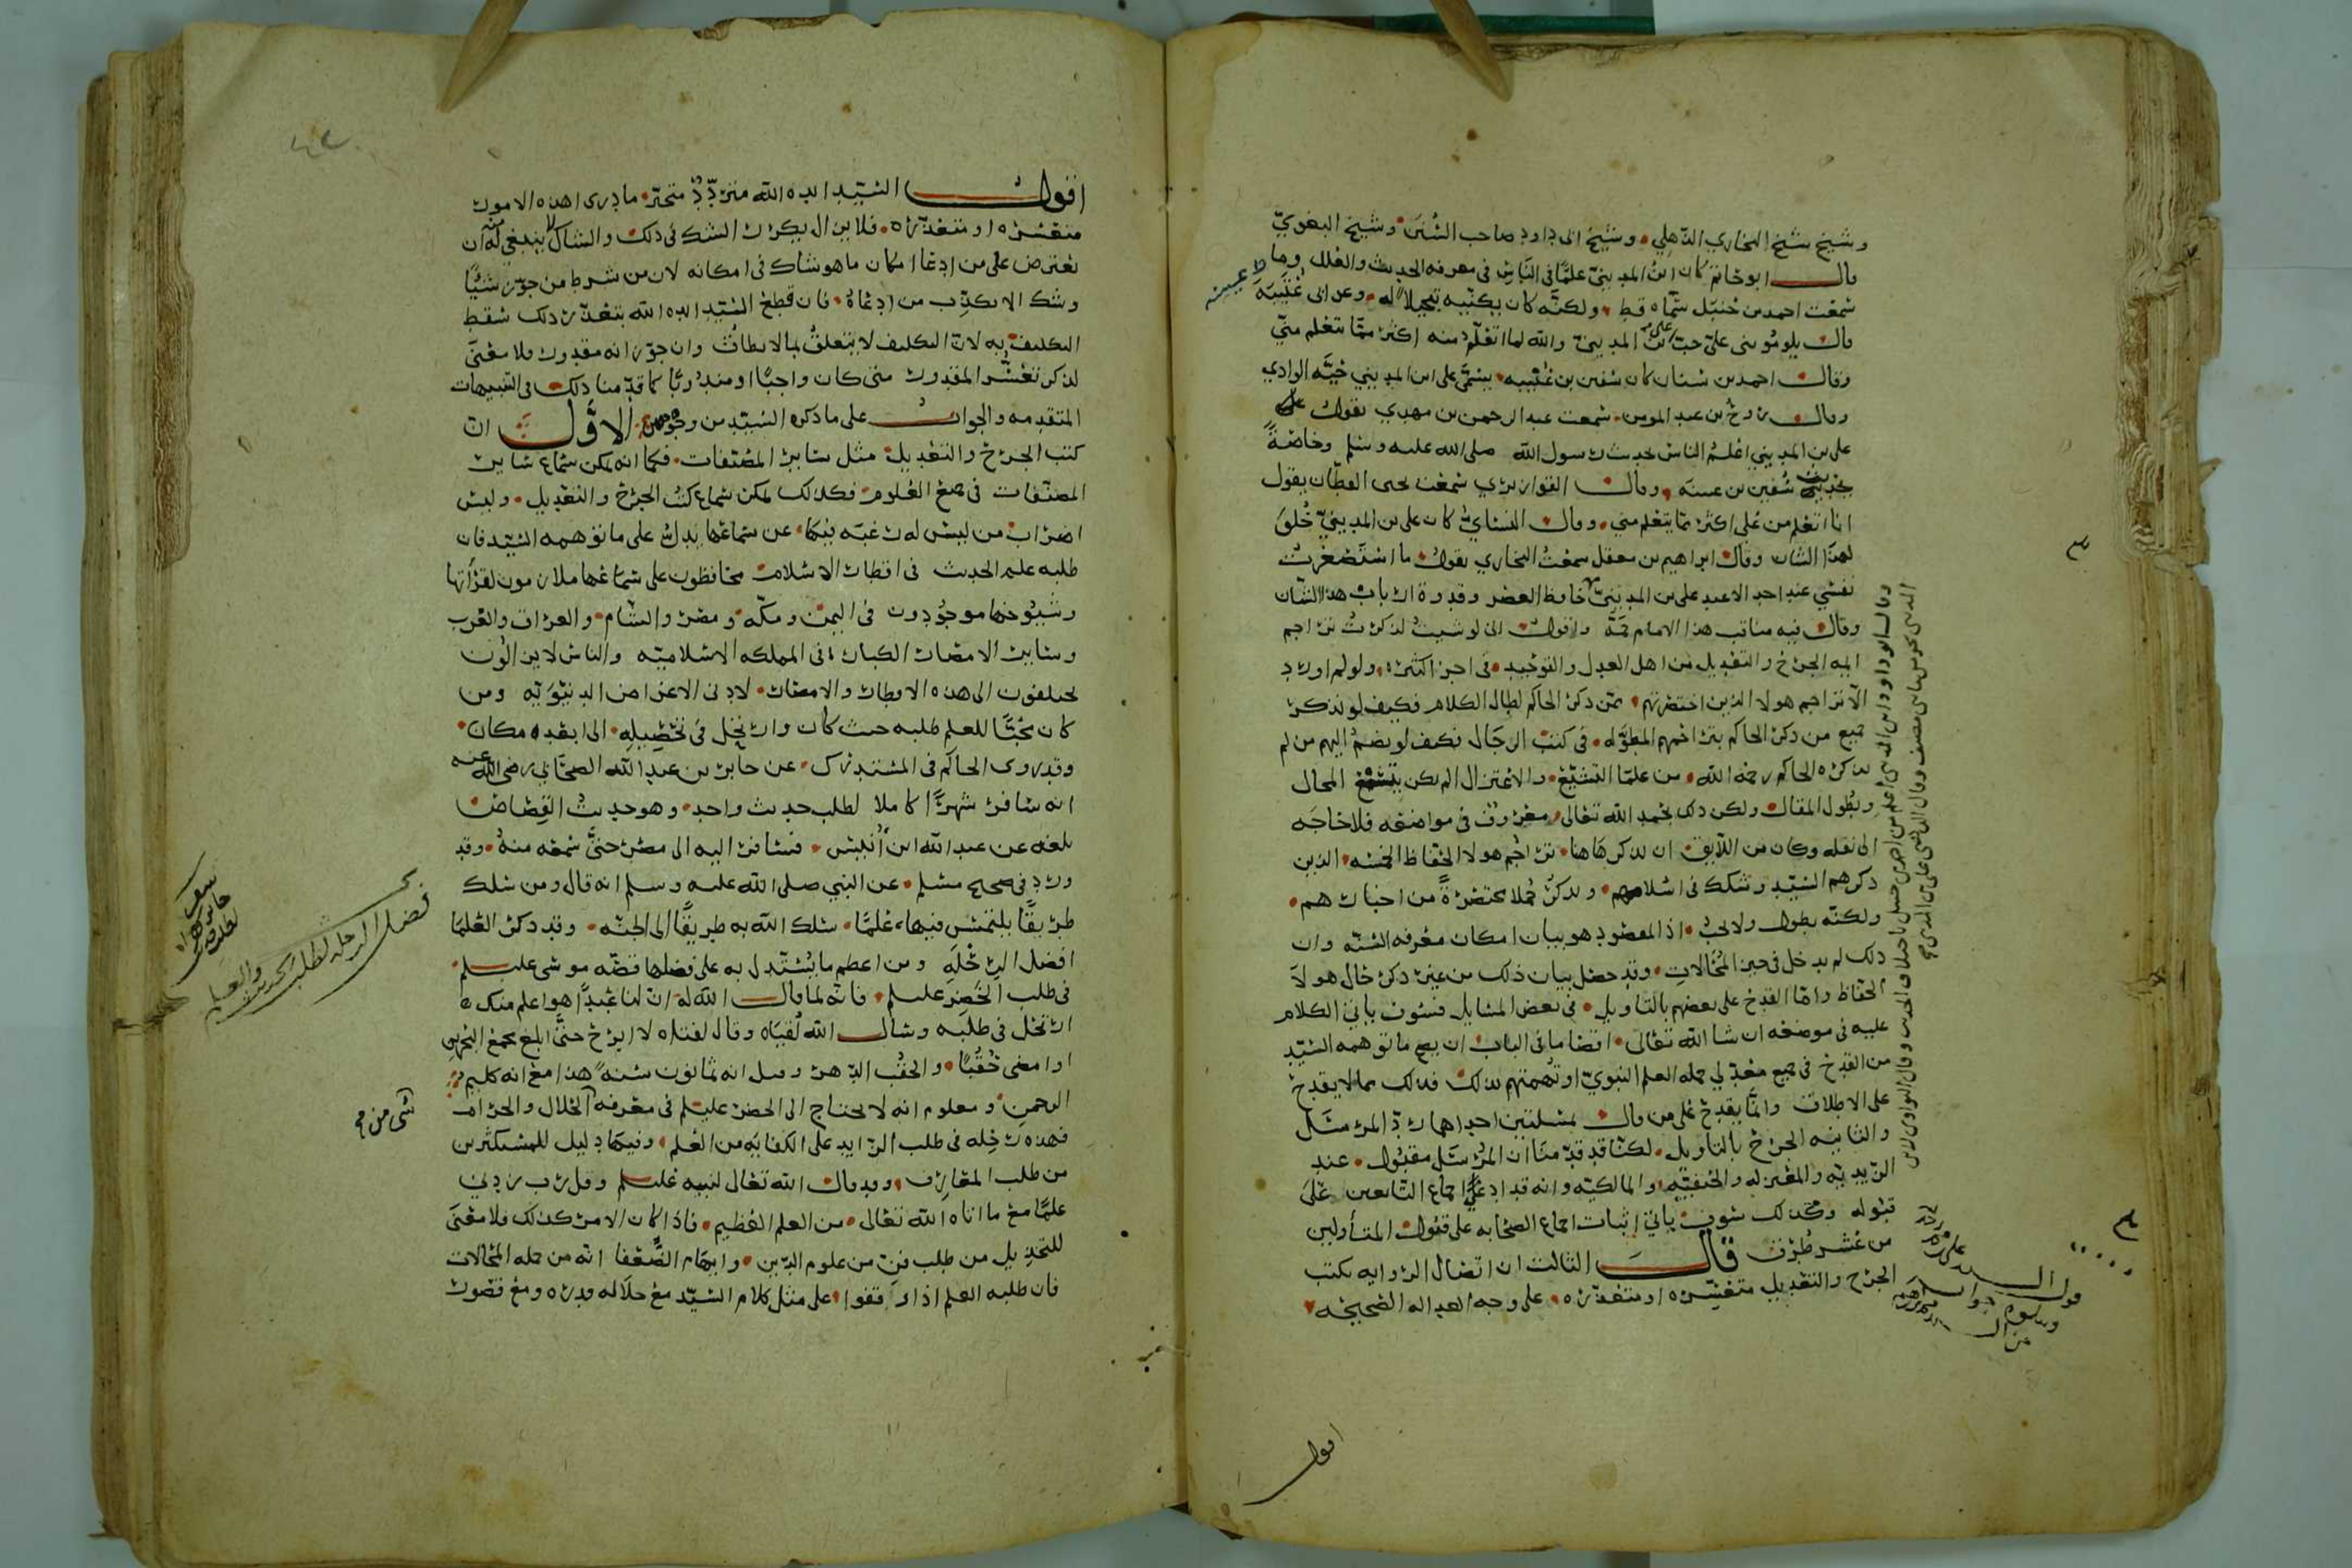 وشيخ شيخ البخاري الذهلي وشيخ ابي داود صاحب السنن وشيخ البغوي
قال ابو حاتم كان ابن المديني علما في الناس في معرفه الحديث والعلل وما
سمعت احمد بن حنبل سماه قط ولكنه كان يكنيه تبجيلا له وعن ابن عيينه
قال يلوموني على حب علي بن المديني والله لما اتعلم منه اكثر مما يتعلم مني
وقال احمد بن سنان كان سفين بن عيينه يسمى علي ابن المديني حيه الوادي
وقال روح بن عبد المومن سمعت عبد الرحمن بن مهدي يقول
علي بن المديني اعلم الناس بحديث رسول الله صلى الله عليه وسلم وخاصة
بحديث سفين بن عيينه وقال القواريري سمعت يحيى القطان يقول
انا اتعلم من علي اكثر مما يتعلم مني وقال النسائي كان علي بن المديني خلق
لهذا الشان وقال ابراهيم بن معقل سمعت البخاري يقول ما استصغرت
نفسي عند احد الا عند علي بن المديني حافظ العصر وقدوة ارباب هذا الشان
وقال فيه مناقب هذا الامام جمة واقول اني لو شيت لذكرت تراجم
ايمه الجرح والتعديل من اهل العدل والتوحيد في اجزا كثيره ولو لم اورد
الا تراجم هولا الذين اختصرتهم ممن ذكر الحاكم لطال الكلام فكيف لو نذكر
جميع من ذكر الحاكم بتراجمهم المطوله في كتب الرجال فكيف لو نضم اليهم من لم
يذكره الحاكم رحمه الله من علما التشيع والاعتزال الم يكن يتسع المجال
ويطول المقال ولكن ذلك بحمد الله تعالى معروف في مواضعه فلا حاجه
الى نقله وكان من اللايق ان يذكر هاهنا تراجم هولا الحفاظ الخمسه الذين
ذكرهم السيد وشكك في اسلامهم ويذكر جملا مختصرة من اخبارهم
ولكنه يطول ولا يجب اذ المقصود هو بيان امكان معرفه السنه وان
ذلك لم يدخل في حيز المحالات وقد حصل بيان ذلك من غير ذكر حال هولا
الحفاظ واما القدح على بعضهم بالتاويل في بعض المسايل فسوف ياتي الكلام
عليه في موضعه ان شا الله تعالى اقصا ما في الباب ان يصح ما توهمه السيد
من القدح في جميع معدلي حمله العلم النبوي او تهمتهم بذلك فذلك مما لا يقدح
على الاطلاق وانما يقدح على من قال بمسلتين احداهما رد المرسل
والثانيه الجرح بالتاويل لكنا قد قدمنا ان المرسل مقبول عند
الزيديه والمعتزله والحنفيه والمالكيه وانه قد ادعي اجماع التابعين على
قبوله وكذلك سوف ياتي اثبات اجماع الصحابه على قبول المتأولين
من عشر طرق قال الثالث ان اتصال الروايه بكتب
الجرح والتعديل متعسره او متعذره على وجه العداله الصحيحه
اقول
اقول السيد ايده الله متردد متحير ما درى اهذه الامور
متعسره او متعذره فلا يزال يكرر الشك في ذلك والشاك لا ينبغي له ان
يعترض على من ادعا امكان ما هو شاك في امكانه لان من شرط من جوز شيئا
وشك الا يكذب من ادعاه فان قطع السيد ايده الله بتعذر ذلك سقط
التكليف به لان التكليف لا يتعلق بما لا يطاق وان جوز انه مقدور فلا معنى
لذكر تعسر المقدور متى كان واجبا او مندوبا كما قدمنا ذلك في التنبيهات
المتقدمه والجواب على ما ذكره السيد من وجوه الاول ان
كتب الجرح والتعديل مثل ساير المصنفات فكما انه يمكن سماع ساير
المصنفات في جميع العلوم فكذلك يمكن سماع كتب الجرح والتعديل وليس
اضراب من ليس له رغبه فيها عن سماعها يدل على ما توهمه السيد فان
طلبه علم الحديث في اقطار الاسلام محافظون على سماعها ملازمون لقرأتها
وشيوخها موجودون في اليمن ومكه ومصر والشام والعراق والغرب
وساير الامصار الكبار في المملكه الاسلاميه والناس لا يزالون
يختلفون الى هذه الاقطار والامصار لادنى الاعراض الدنيويه ومن
كان محبا للعلم طلبه حيث كان وارتحل في تحصيله الى ابعد مكان
وقد روى الحاكم في المستدرك عن جابر بن عبد الله الصحابي رضي الله عنه
انه سافر شهرا كاملا لطلب حديث واحد وهو حديث القصاص
بلغه عن عبد الله ابن أنيس فسافر اليه الى مصر حتى سمعه منه وقد
ورد في صحيح مسلم عن النبي صلى الله عليه وسلم انه قال ومن سلك
طريقا يلتمس فيها علما سلك الله به طريقا الى الجنه وقد ذكر العلما
افضل الرحله ومن اعظم ما يستدل به على فضلها قصه موسى عليه سلم
في طلب الخضر عليه سلم فانه لما قال الله له ان لنا عبدا هو اعلم منك
ارتحل في طلبه وسأل الله لقياه وقال لفتاه لا ابرح حتى ابلغ مجمع البحرين
او امضي حقبا والحقب الدهر وقيل انه ثمانون سنه هذا مع انه كليم
الرحمن ومعلوم انه لا يحتاج الى الخضر عليه سلم في معرفه الحلال والحرام
فهذه رحله في طلب الزايد على الكفايه من العلم وفيها دليل للمستكثرين
من طلب المعارف وقد قال الله تعالى لنبيه عليه سلم وقل رب زدني
علما مع ما اتاه الله تعالى من العلم العظيم فاذا كان الامر كذلك فلا معنى
للتخذيل من طلب فن من علوم الدين وايهام الضعفا انه من جمله المحالات
فان طلبه العلم اذا وقفوا على مثل كلام السيد مع جلاله قدره ومع قصور
فضل الرحله لطلب الحديث والعلم
شي من